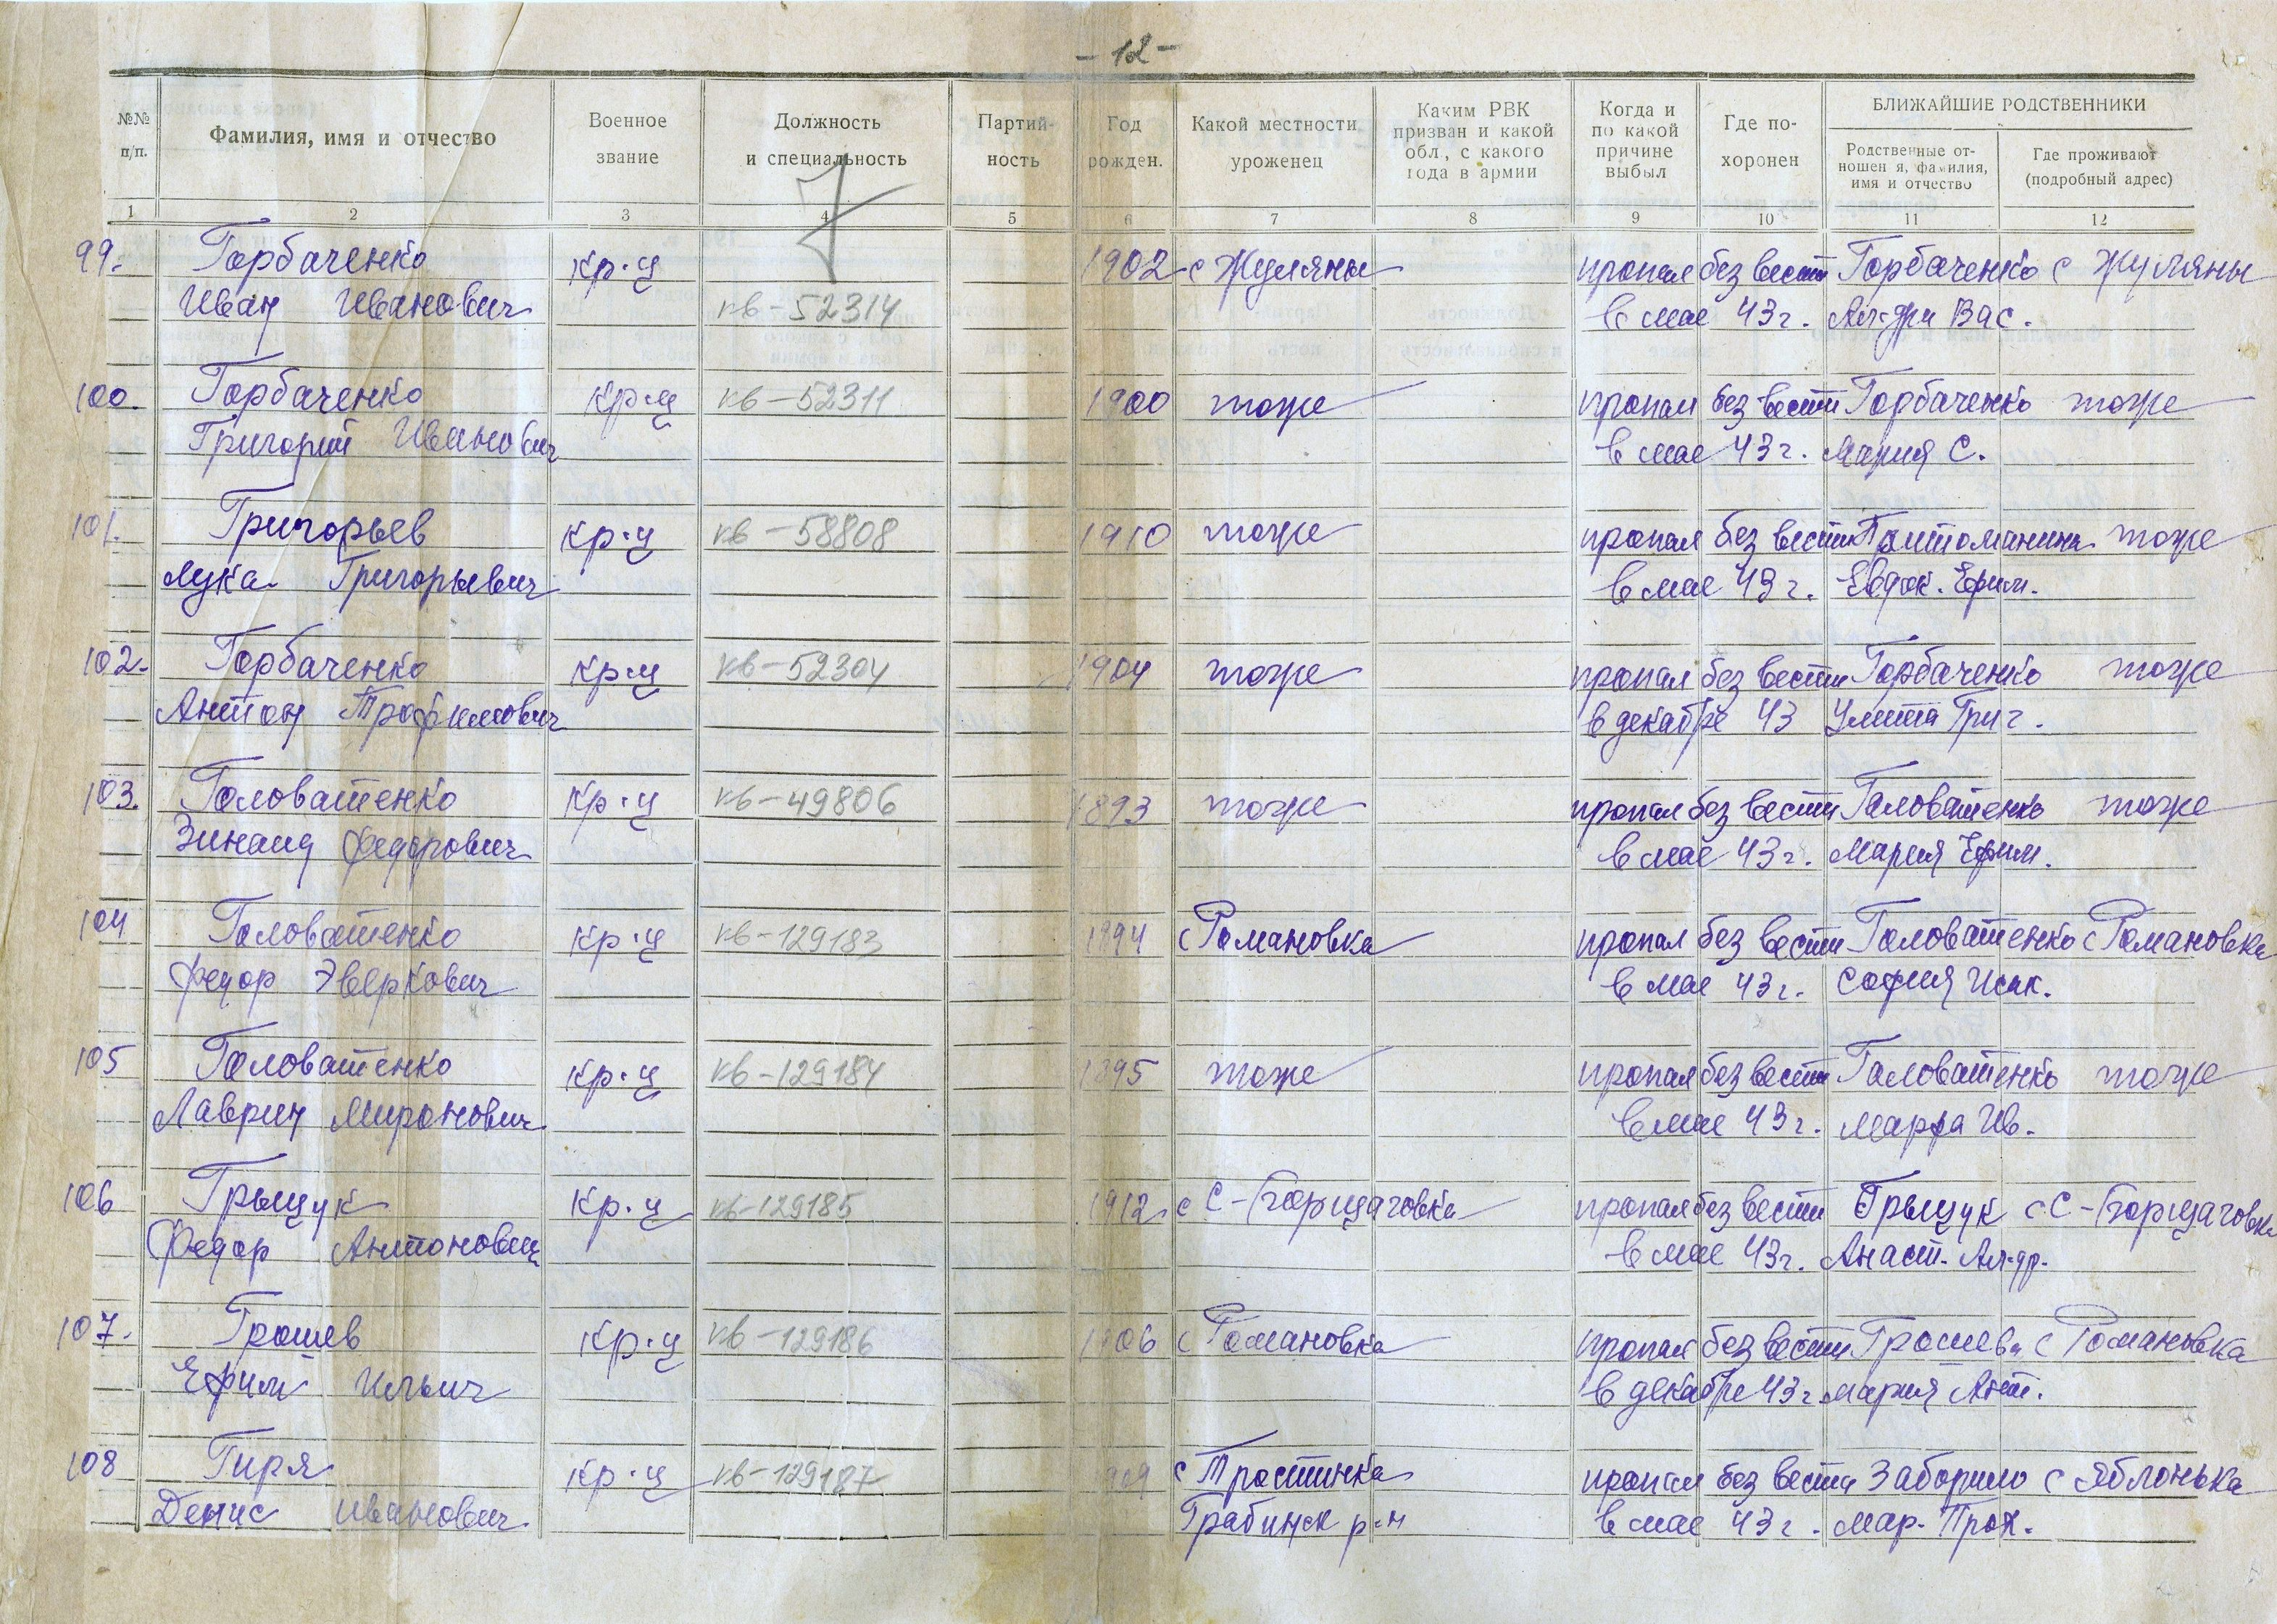 - 12 -
№№ п/п. Фамилия, имя и отчество Военное звание Должность и специальность Партий- ность Год рожден. Какой местности уроженец Каким РВК призван и какой обл., с какого года в армии Когда и по какой причине выбыл Где по- хоронен БЛИЖАЙШИЕ РОДСТВЕННИКИ
Родственные от- ношен я, фамилия, имя и отчество Где проживают (подробный адрес)
1 2 3 4 5 6 7 8 9 10 11 12
99. Горбаченко кр-ц 1902 с Жуляны пропал без вести Горбаченко с Жуляны
Иван Иванович кв-52314 в мае 43 г. Ал-дра Вас.
100. Горбаченко кр-ц кв-52311 1900 тоже пропал без вести Горбаченко тоже
Григорий Иванович в мае 43 г. Мария С.
101. Григорьев кр-ц кв-58808 1910 тоже пропал без вести тоже
Лука Григорьевич в мае 43 г. Евдок. Ефим.
102. Горбаченко кр-ц кв-52304 1904 тоже пропал без вести Горбаченко тоже
Антон Трофимович в декабре 43 Улита Григ.
103. Головатенко кр-ц кв-49806 1893 тоже пропал без вести Головатенко тоже
Зинаид Федорович в мае 43 г. Мария Ефим.
104 Головатенко кр-ц кв-129183 1894 с Романовка пропал без вести Головатенко с Романовка
Федор Зверкович в мае 43 г. София Исак.
105 Головатенко кр-ц кв-129184 1895 тоже пропал без вести Головатенко тоже
Лаврин Миронович в мае 43 г. Марфа Ив.
106 Грыщук кр-ц кв-129185 1912 с С-Борщаговка пропал без вести Грыщук с С-Борщаговка
Федор Антонович в мае 43 г. Анаст. Ал-др.
107. Грошев кр-ц кв-129186 1906 с Романовка пропал без вести Грошева с Романовка
Ефим Ильич в декабре 43 г. Мария Ант.
108 Гиря кр-ц кв-129187 1909 с Тростинка пропал без вести Заборило с Яблонька
Денис Иванович Грабинск р-н в мае 43 г. Мар. Прок.